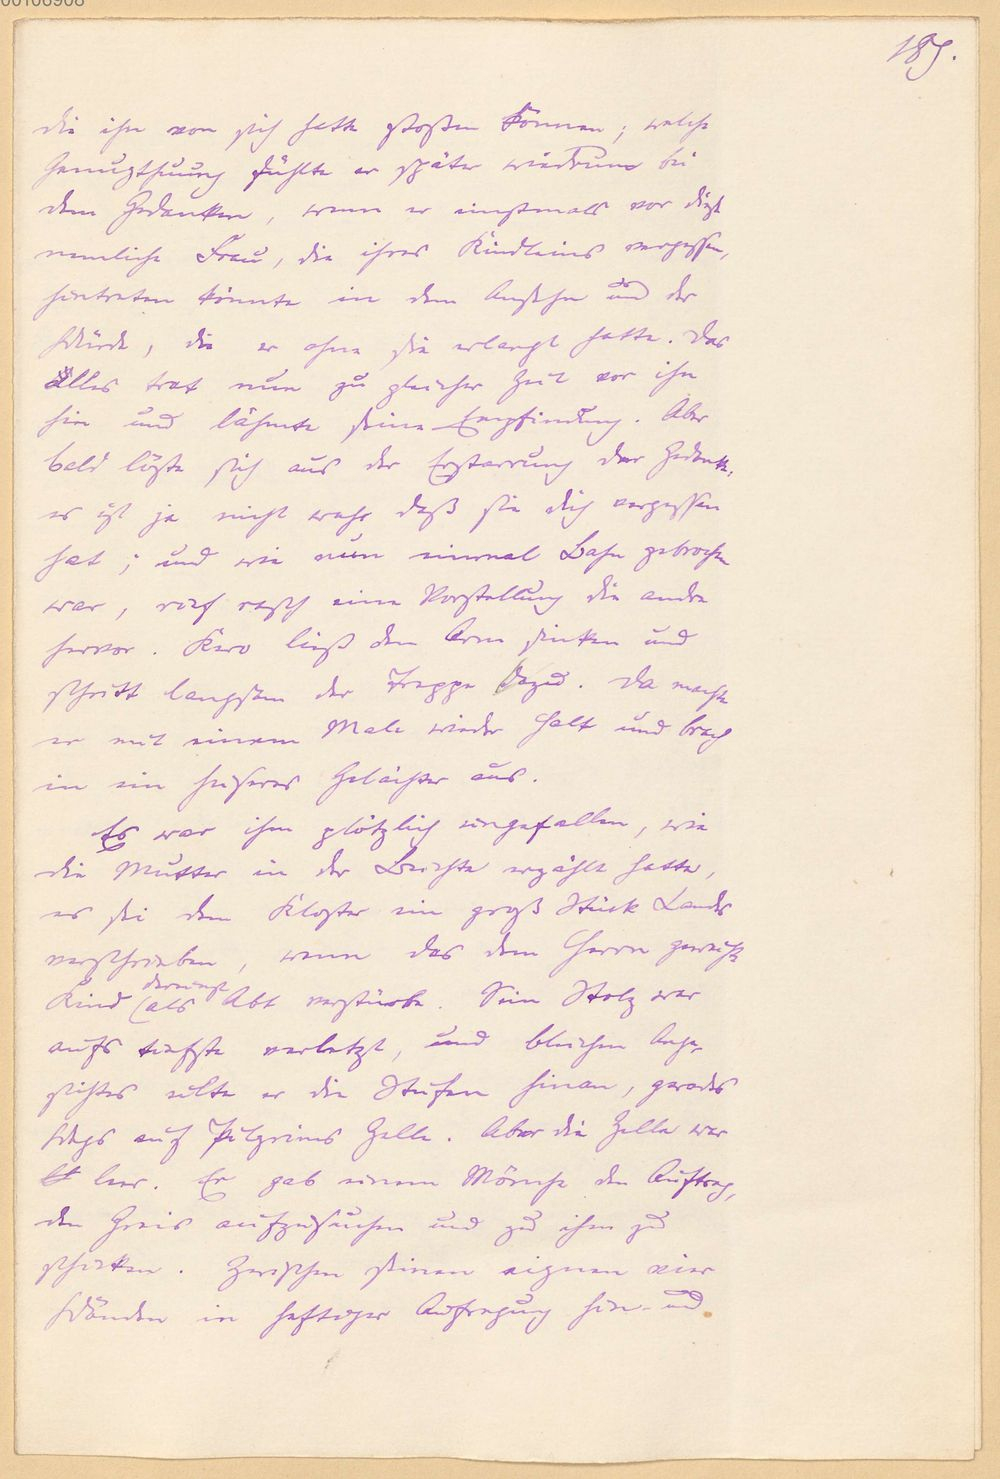 00106908
189.
die ihn von sich hatte stoßen können; welche
Genugthuung fühlte er später wiedrum bei
dem Gedanken, wenn er einstmals vor diese
nemliche Frau, die ihres Kindleins vergessen,
hintreten könnte in dem Ansehn und der
Würde, die er ohne sie erlangt hatte. Das
Alles trat nun zu gleicher Zeit vor ihn
hin und lähmte seine Empfindung. Aber
bald löste sich aus der Erstarrung der Gedanke,
es ist ja nicht wahr daß sie dich vergessen
hat; und wie nun einmal Bahn gebrochen
war, rief rasch eine Vorstellung die andre
hervor. Kero ließ den Arm sinken und
schritt langsam der Treppe zu. Da machte
er mit einem Male wieder Halt und brach
in ein heiseres Gelächter aus.
Es war ihm plötzlich eingefallen, wie
die Mutter in der Beichte erzählt hatte,
es sei dem Kloster ein groß Stück Lands
verschrieben, wenn das dem Herrn geweihte
dereinst
Kind als Abt verstürbe. Sein Stolz war
aufs tiefste verletzt, und bleichen Ange-
sichtes eilte er die Stufen hinan, gerades
Wegs auf Pilgrims Zelle. Aber die Zelle war
leer. Er gab einem Mönche den Auftrag,
den Greis aufzusuchen und zu ihm zu
schicken. Zwischen seinen eignen vier
Wänden in heftiger Aufregung hin- und